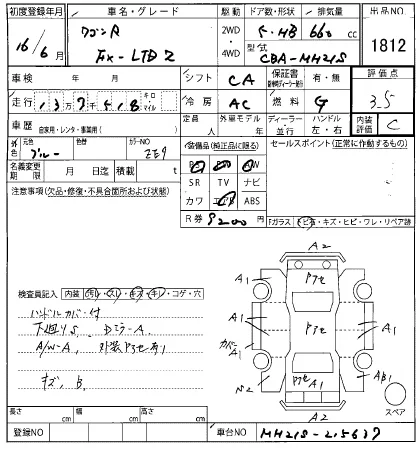 初度登録年月 車名・グレード 駆動 ドア数・形状 排気量 出品NO
16/6月 ワゴンR 2WD・4WD 5・HB 660 cc 1812
FX-LTD2 型式 CBA-MH21S
車検 年 月 シフト CA 保証書 有・無 評価点
走行 13万7千518 キロ マイル 冷房 AC 燃料 G 3.5
車歴 自家用・レンタ・事業用( ) 定員 人 外車モデル 年 ディーラー・並行 ハンドル 左・右 内装評価 C
外色 元色 ブルー 色替 カラーNO ZE9 装備品(純正品に限る) セールスポイント(正常に作動するもの)
名義変更期限 月 日迄 積載 t SR TV ナビ
注意事項(欠品・修復・不具合箇所および状態) カワ エアB ABS
R券 9200 円 Fガラス トビ石・キズ・ヒビ・ワレ・リペア跡
検査員記入 内装 汚レ・スレ・キズ・キレ・コゲ・穴
ハンドルカバー付
下廻りS Dミラー A
A/W-A 外装アセ有り
キズ、B
A2
A1 アセ A1
A1 アセ A1
カバーA1
A2 アセ A1 AB1
A2
スペア
長さ cm 幅 cm 高さ cm
登録NO 車台NO MH21S-215637